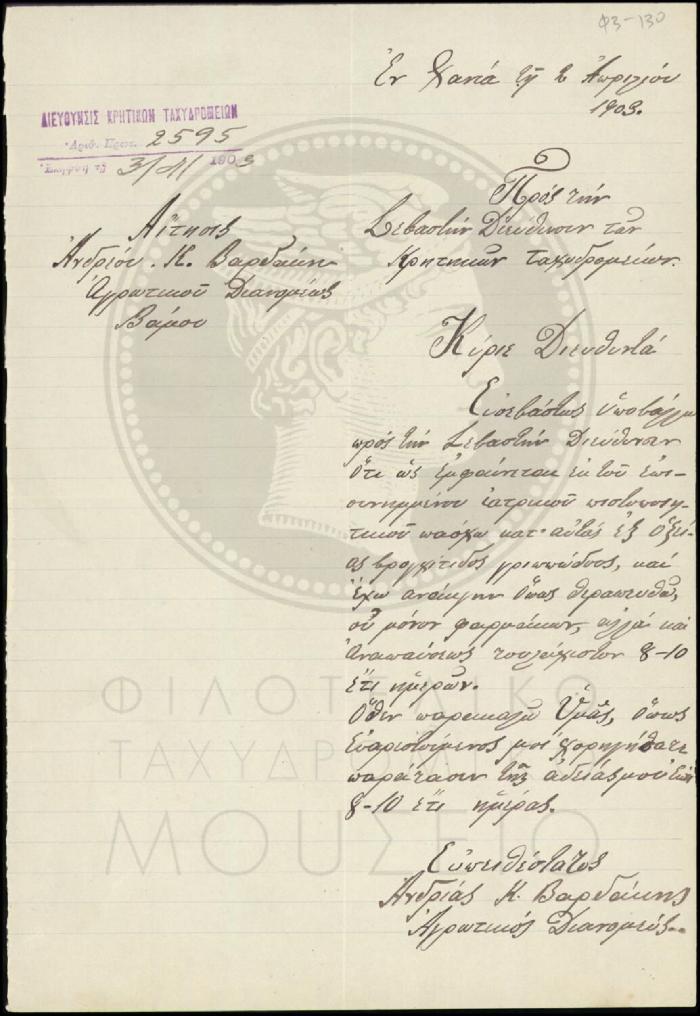 Φ3-130
Ἐν Χανιά τῇ 2 Ἀπριλίου
1903.
ΔΙΕΥΘΥΝΣΙΣ ΚΡΗΤΙΚΩΝ ΤΑΧΥΔΡΟΜΕΙΩΝ
Ἀριθ. Πρωτ. 2595
3/4 1903
Πρός τήν
Σεβαστήν Διεύθυνσιν τῶν
Κρητικῶν ταχυδρομείων.
Αἴτησις
Ἀνδρέου Κ. Βαρδάκη
Ἀγροτικοῦ Διανομέως
Βάμου
Κύριε Διευθυντά
Εὐσεβάστως ὑποβάλλω
πρός τήν Σεβαστήν Διεύθυνσιν
ὅτι ὡς ἐμφαίνεται ἐκ τοῦ ἐπι-
συνημμένου ἰατρικοῦ πιστοποιη-
τικοῦ πάσχω κατ' αὐτάς ἐξ ὀξεί-
ας βρογχίτιδος γριππώδους, καί
ἔχω ἀνάγκην ὅπως θεραπευθῶ,
οὐ μόνον φαρμάκων, ἀλλά καί
ἀναπαύσεως τουλάχιστον 8-10
ἔτι ἡμερῶν.
Ὅθεν παρακαλῶ Ὑμᾶς, ὅπως
εὐαρεστούμενος μοί χορηγήσατε
παράτασιν τῆς ἀδείας μου ἐπί
8-10 ἔτι ἡμέρας.
Εὐπειθέστατος
Ἀνδρέας Κ. Βαρδάκης
Ἀγροτικός Διανομεύς
ΦΙΛΟΤΕΛΙΚΟ
ΤΑΧΥΔΡΟΜΙΚΟ
ΜΟΥΣΕΙΟ